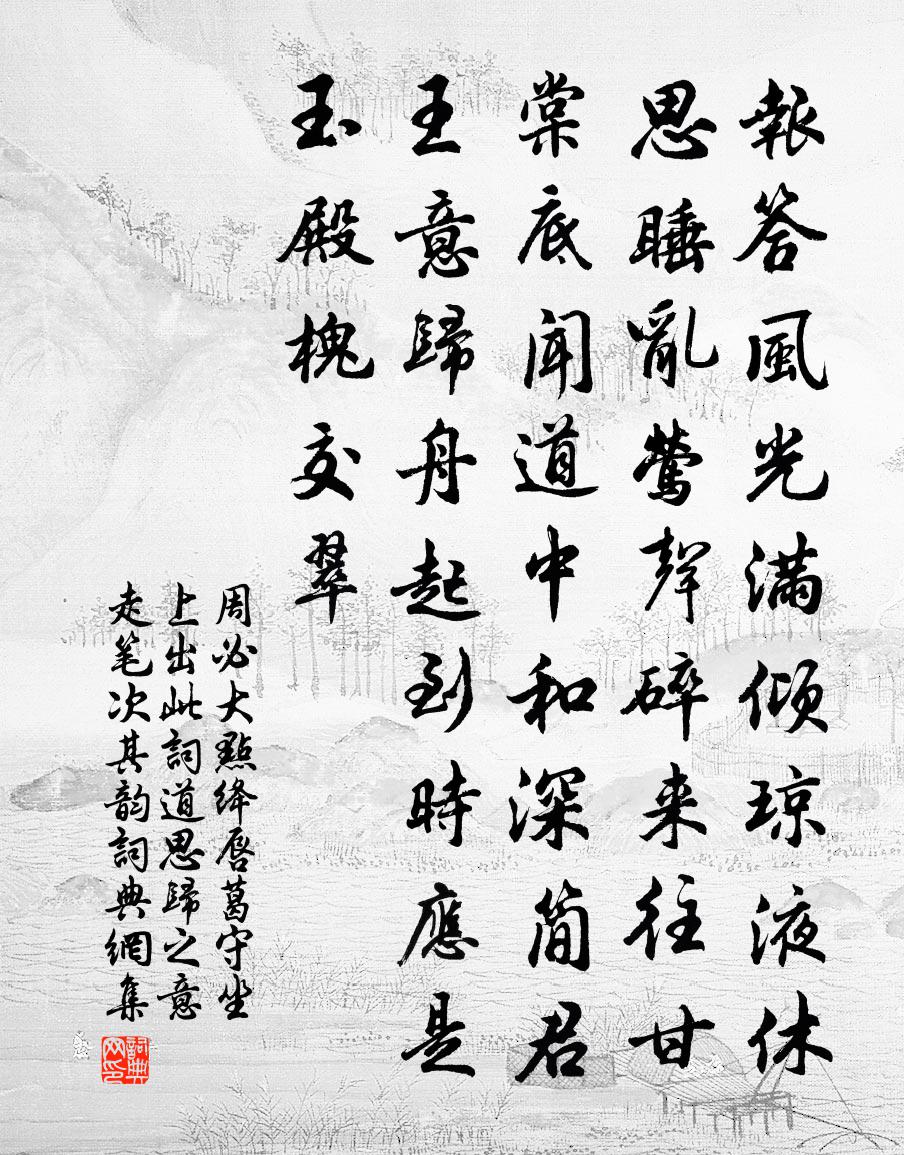 報答風光滿傾瓊液休
思睡亂鶯聲碎来往甘
棠底闻道中和深简君
王意歸舟起到時應是
玉殿槐交翠
周必大點绛唇葛守坐
上出此詞道思歸之意
走笔次其韵詞典網集
詞典网印